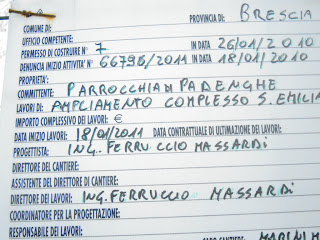 COMUNE DI: PROVINCIA DI: BRESCIA
UFFICIO COMPETENTE:
PERMESSO DI COSTRUIRE N° 7 IN DATA 26/01/2010
DENUNCIA INIZIO ATTIVITA' N° 66796/2011 IN DATA 18/01/2010
PROPRIETA':
COMMITTENTE: PARROCCHIA DI PADENGHE
LAVORI DI: AMPLIAMENTO COMPLESSO S. EMILIA
IMPORTO COMPLESSIVO DEI LAVORI: €
DATA INIZIO LAVORI: 18/01/2011 DATA CONTRATTUALE DI ULTIMAZIONE DEI LAVORI:
PROGETTISTA: ING. FERRUCCIO MASSARDI
DIRETTORE DEL CANTIERE:
ASSISTENTE DEL DIRETTORE DI CANTIERE:
DIRETTORE DEI LAVORI: ING. FERRUCCIO MASSARDI
COORDINATORE PER LA PROGETTAZIONE:
RESPONSABILE DEI LAVORI: